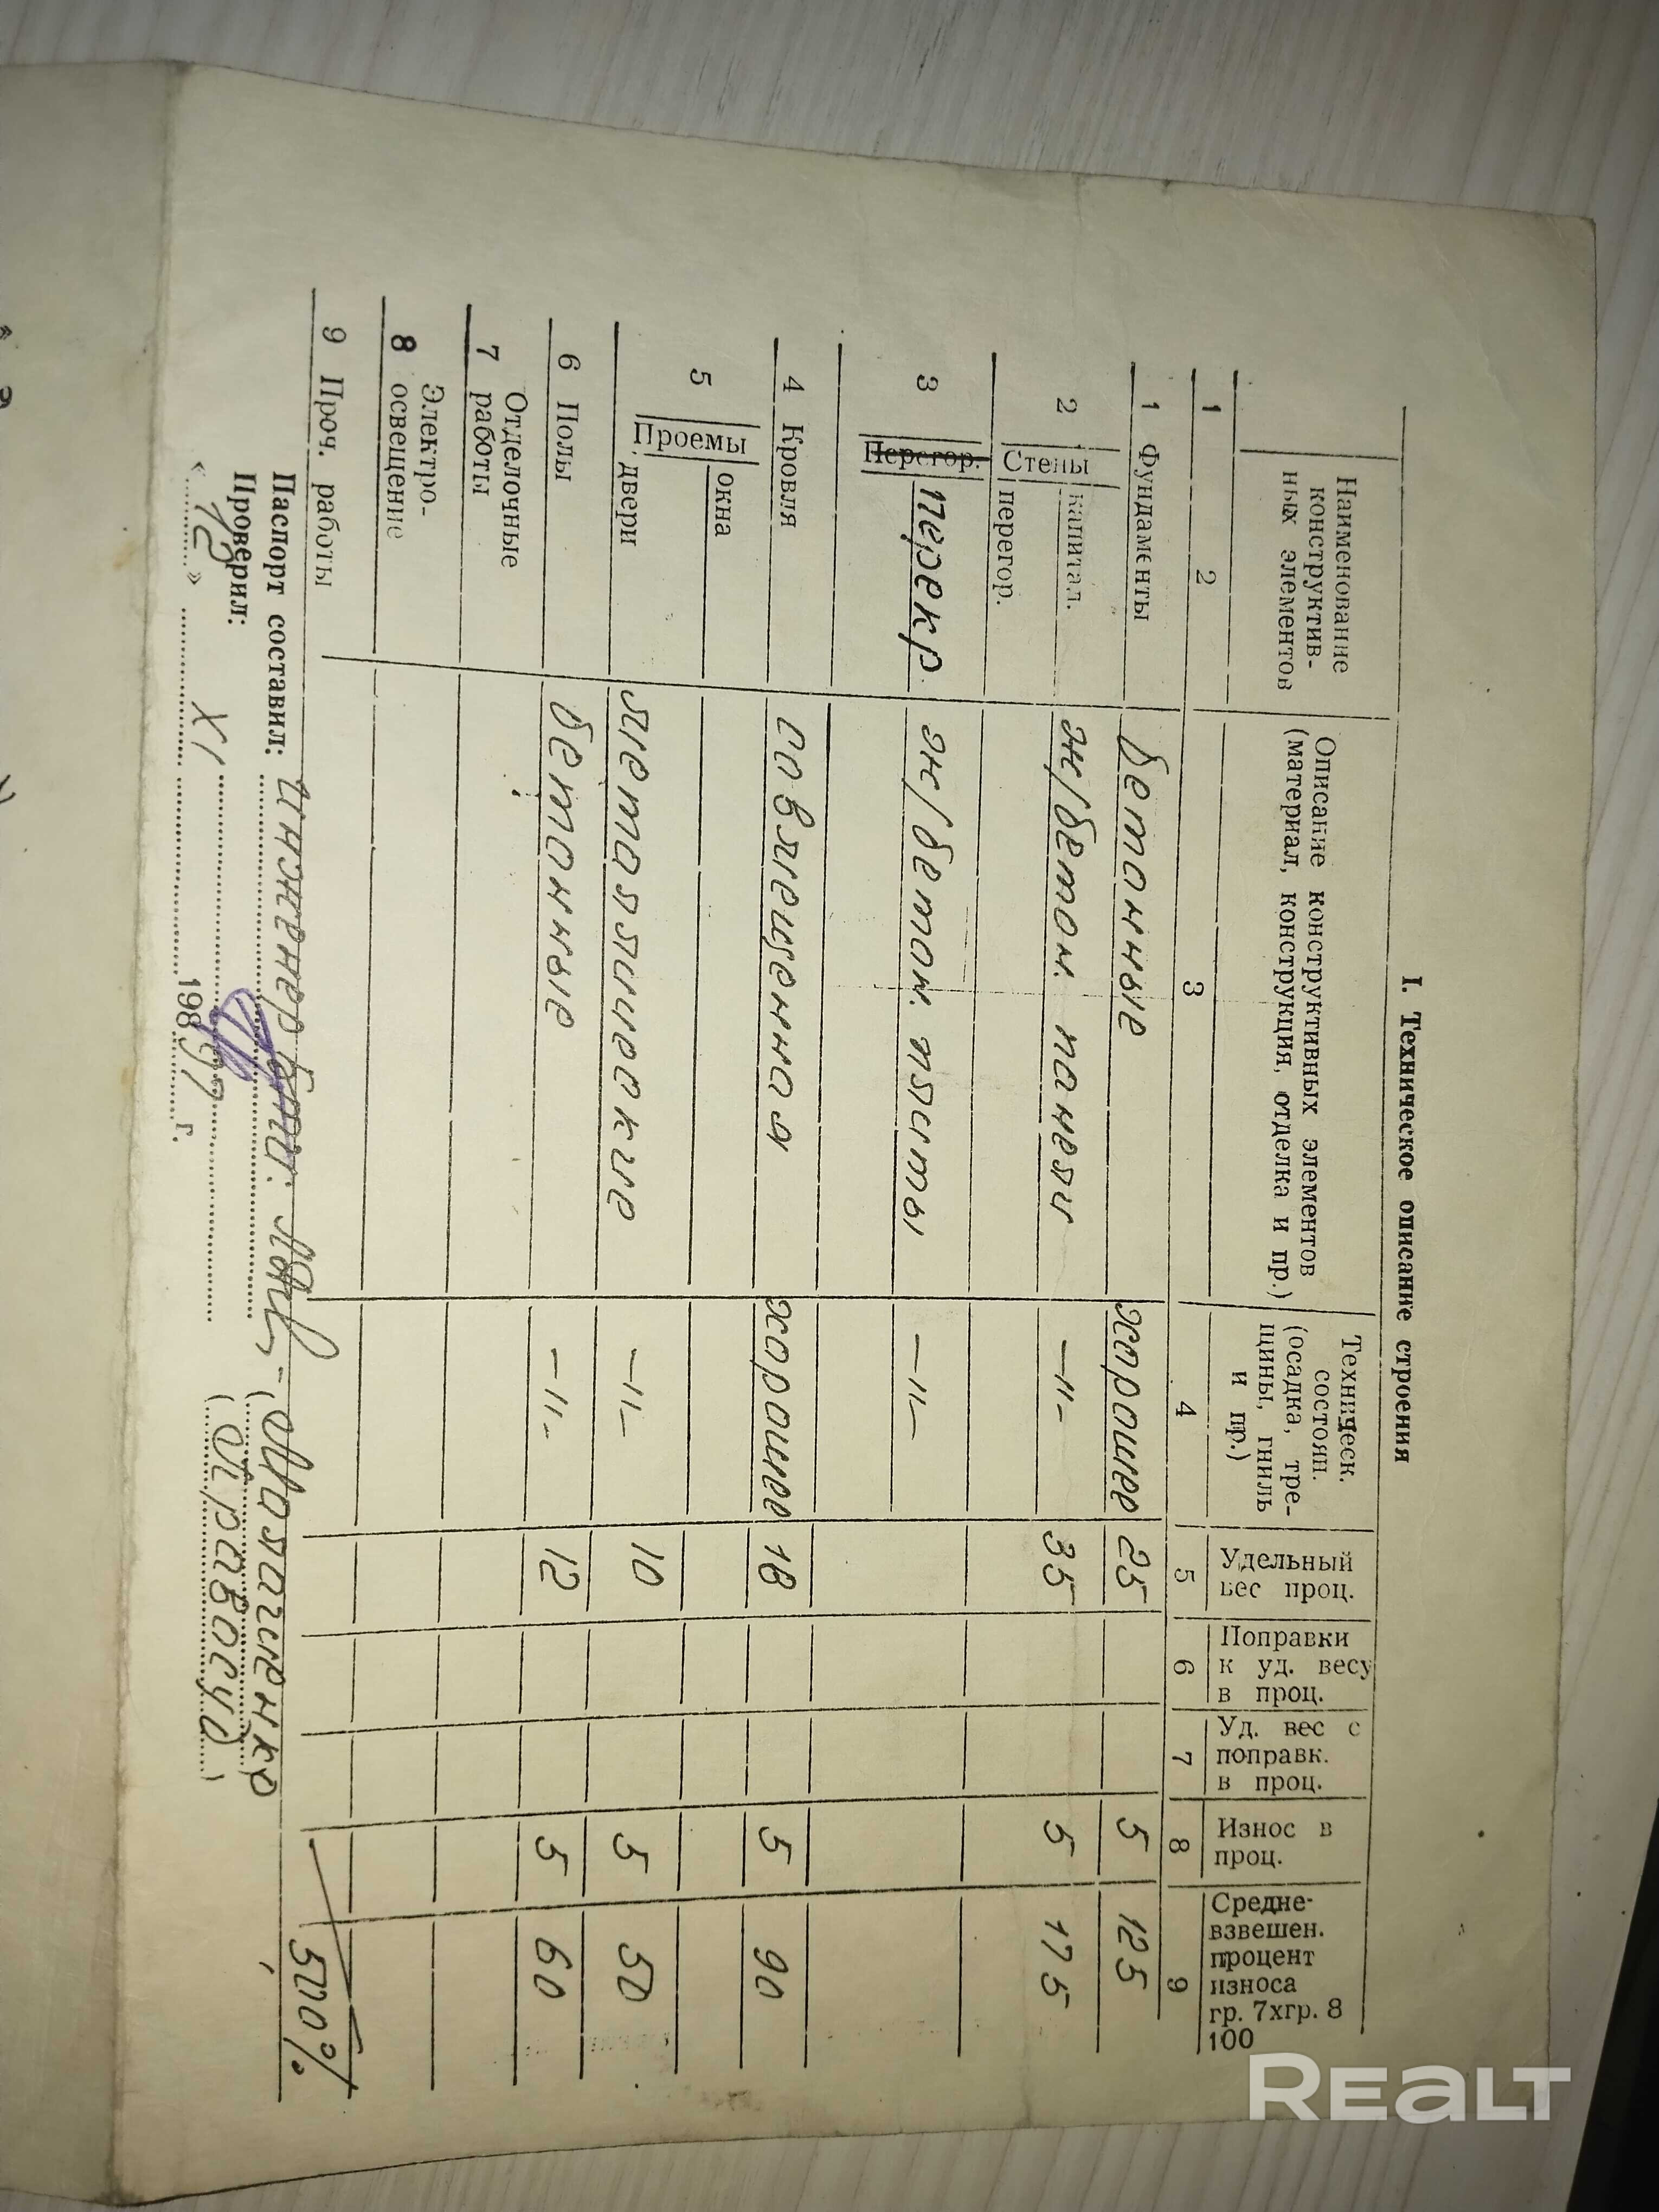 I. Техническое описание строения
Наименование конструктив- ных элементов
Описание конструктивных элементов (материал, конструкция, отделка и пр.)
Техническ. состоян. (осадка, тре- щины, гниль и пр.)
Удельный вес проц.
Поправки к уд. весу в проц.
Уд. вес с поправк. в проц.
Износ в проц.
Средне- взвешен. процент износа гр. 7хгр. 8 100
1 2 3 4 5 6 7 8 9
1 Фундаменты бетонные хорошее 25 5 125
2 Стены капитал. ж/бетон. панели —"— 35 5 175
перегор.
3 Перегор. перекр. ж/бетон. плиты —"—
4 Кровля совмещенная хорошее 18 5 90
5 Проемы окна
двери металлические —"— 10 5 50
6 Полы бетонные —"— 12 5 60
7 Отделочные работы
8 Электро- освещение
9 Проч. работы
500%
Паспорт составил: инженер бриг.
Проверил:
« 12 » XI 198 97 г.
REALT